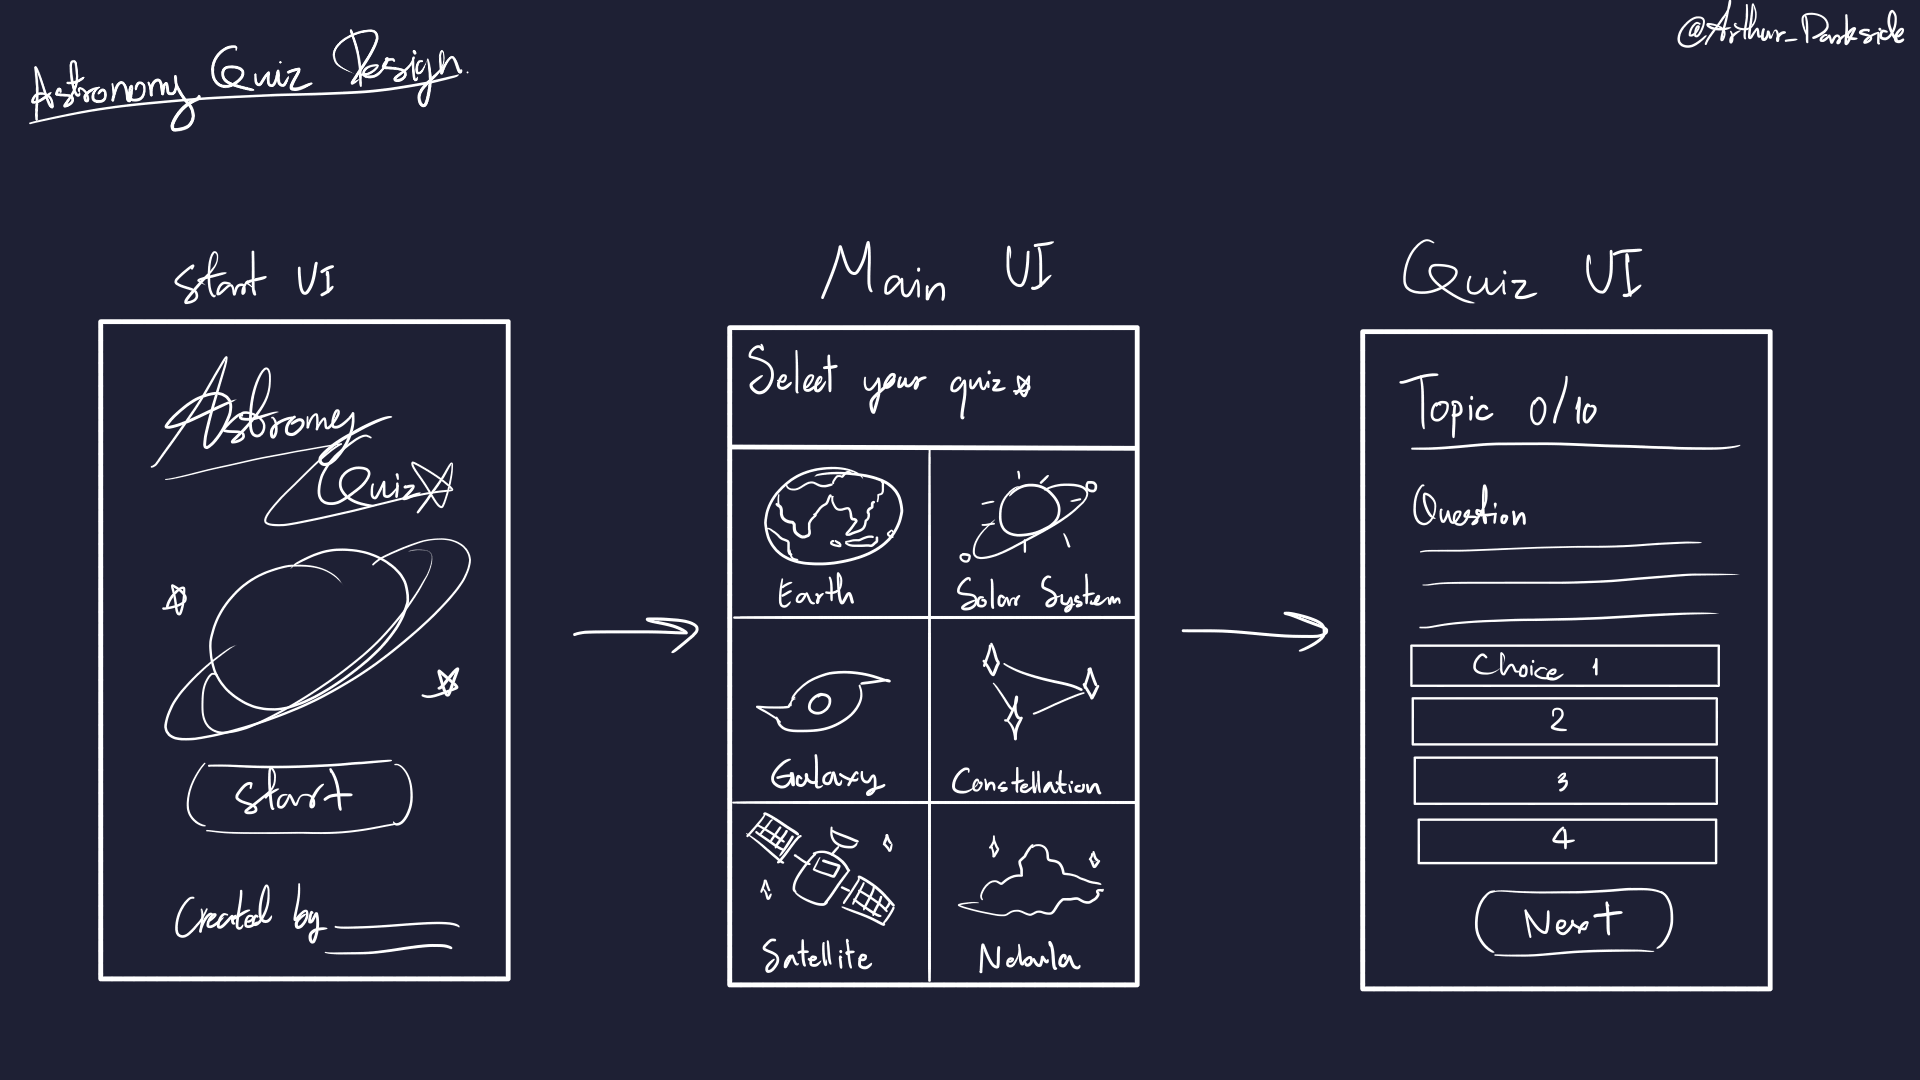 @Arthur_Darkside
Astronomy Quiz Design
Start UI
Astromy
Quiz
Start
Created by
Main UI
Select your quiz
Earth
Solar System
Galaxy
Constellation
Satellite
Nebula
Quiz UI
Topic 0/10
Question
Choice 1
2
3
4
Next